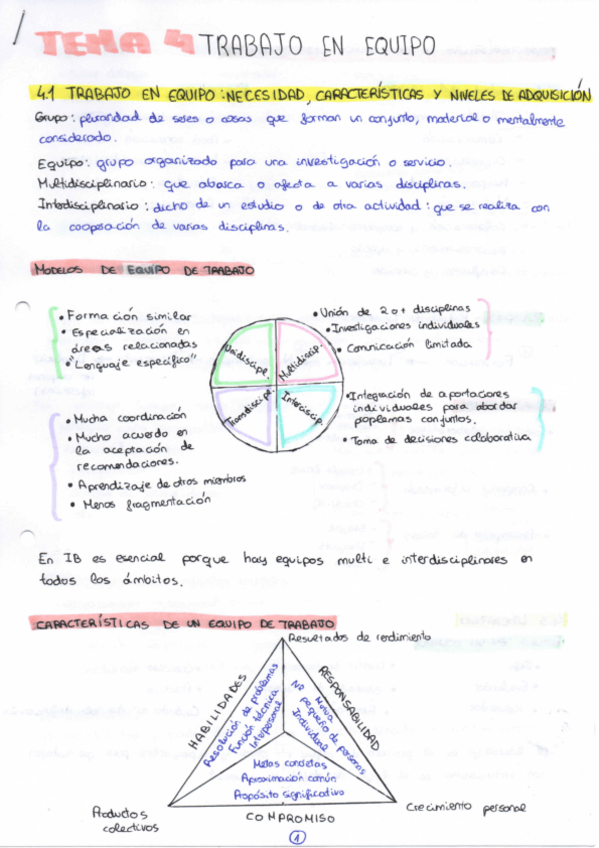 TEMA 4 TRABAJO EN EQUIPO
4.1 TRABAJO EN EQUIPO: NECESIDAD, CARACTERÍSTICAS Y NIVELES DE ADQUISICIÓN
Grupo: pluralidad de seres o cosas que forman un conjunto, material o mentalmente
considerado.
Equipo: grupo organizado para una investigación o servicio.
Multidisciplinario: que abarca o afecta a varias disciplinas.
Interdisciplinario: dicho de un estudio o de otra actividad: que se realiza con
la cooperación de varias disciplinas.
MODELOS DE EQUIPO DE TRABAJO
• Formación similar
• Especialización en
áreas relacionadas
• "Lenguaje específico"
• Unión de 2 o + disciplinas
• Investigaciones individuales
• Comunicación limitada
Unidiscipl.
Multidiscip.
Transdiscipl.
Interdiscip.
• Mucha coordinación
• Mucho acuerdo en
la aceptación de
recomendaciones.
• Aprendizaje de otros miembros
• Menos fragmentación
• Integración de aportaciones
individuales para abordar
problemas conjuntos.
• Toma de decisiones colaborativa
En IB es esencial porque hay equipos multi e interdisciplinares en
todos los ámbitos.
CARACTERÍSTICAS DE UN EQUIPO DE TRABAJO
Resultados de rendimiento
HABILIDADES
Resolución de problemas
Función técnica
Interpersonal
RESPONSABILIDAD
Mutua
Nº pequeño de personas
Individual
Metas concretas
Aproximación común
Propósito significativo
Productos
colectivos
COMPROMISO
Crecimiento personal
1